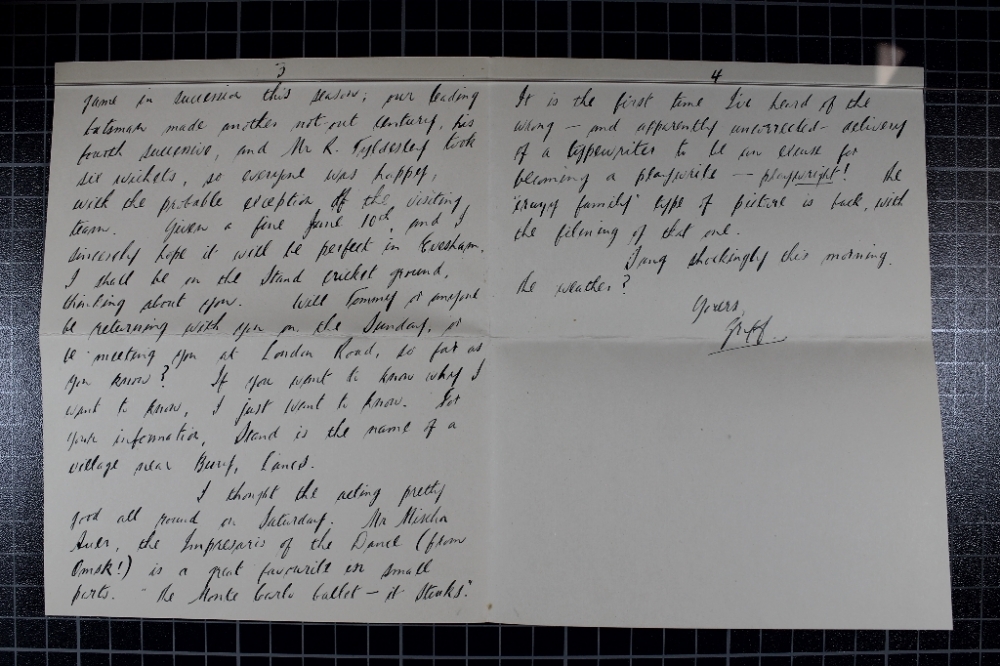 3
game in succession this season; our leading
batsman made another not-out century, his
fourth successive, and Mr R. Tyldesley took
six wickets, so everyone was happy,
with the probable exception of the visiting
team. Given a fine June 10th, and I
sincerely hope it will be perfect in Evesham.
I shall be on the Stand cricket ground,
thinking about you. Will Tommy or anyone
be returning with you on the Sunday, or
be meeting you at London Road, so far as
you know? If you want to know why I
want to know, I just want to know. For
your information, Stand is the name of a
village near Bury, Lancs.
I thought the acting pretty
good all round on Saturday. Mr Mischa
Auer, the Impresario of the Dance (from
Omsk!) is a great favourite in small
parts. "The Monte Carlo ballet — it stinks."
4
It is the first time I've heard of the
wrong — and apparently uncorrected — delivery
of a typewriter to be an excuse for
becoming a playwrite — playwright! The
'crazy family' type of picture is back, with
the filming of that one.
Sang shockingly this morning.
The weather?
Yours,
Griff